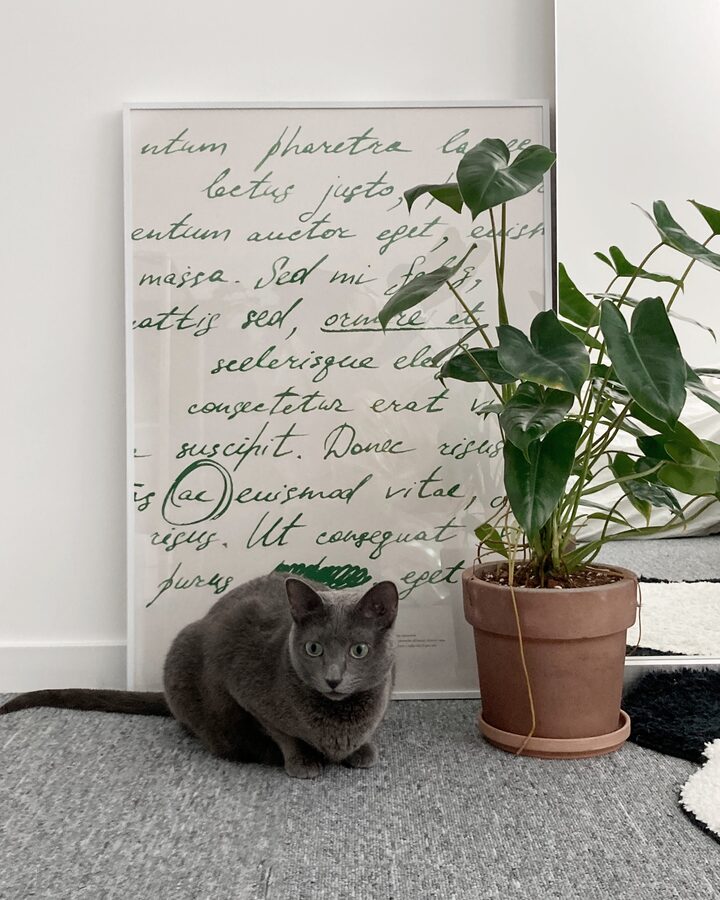 ntum pharetra
lectus justo,
entum auctor eget, euism
massa. Sed mi
attis sed, ornare et
scelerisque
consectetur erat
suscipit. Donec risus
ac euismod vitae,
risus. Ut consequat
purus eget